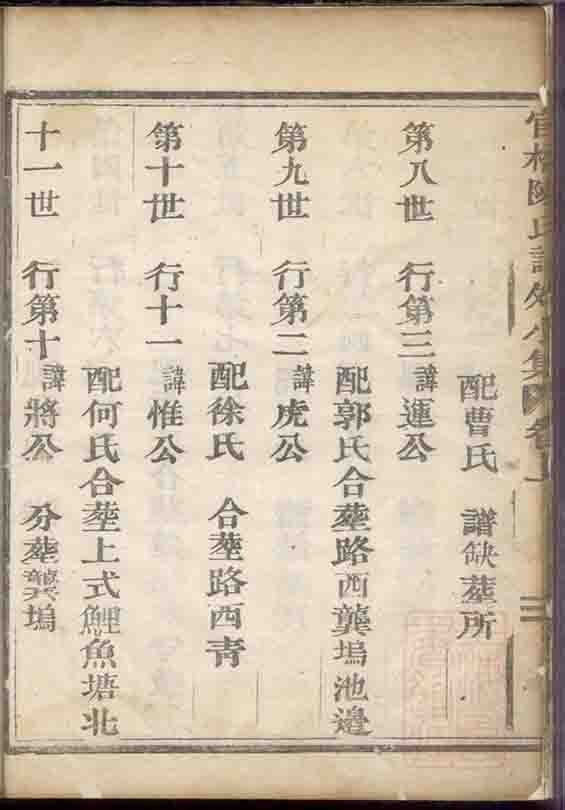 官橋陳氏譜外小集 卷上
配曹氏 譜缺塟所
第八世 行第三 諱運公
配郭氏合塟路西龔塢池邊
第九世 行第二 諱虎公
配徐氏 合塟路西青
第十世 行十一 諱惟公
配何氏合塟上式鯉魚塘北
十一世 行第十 諱將公 分塟龔塢